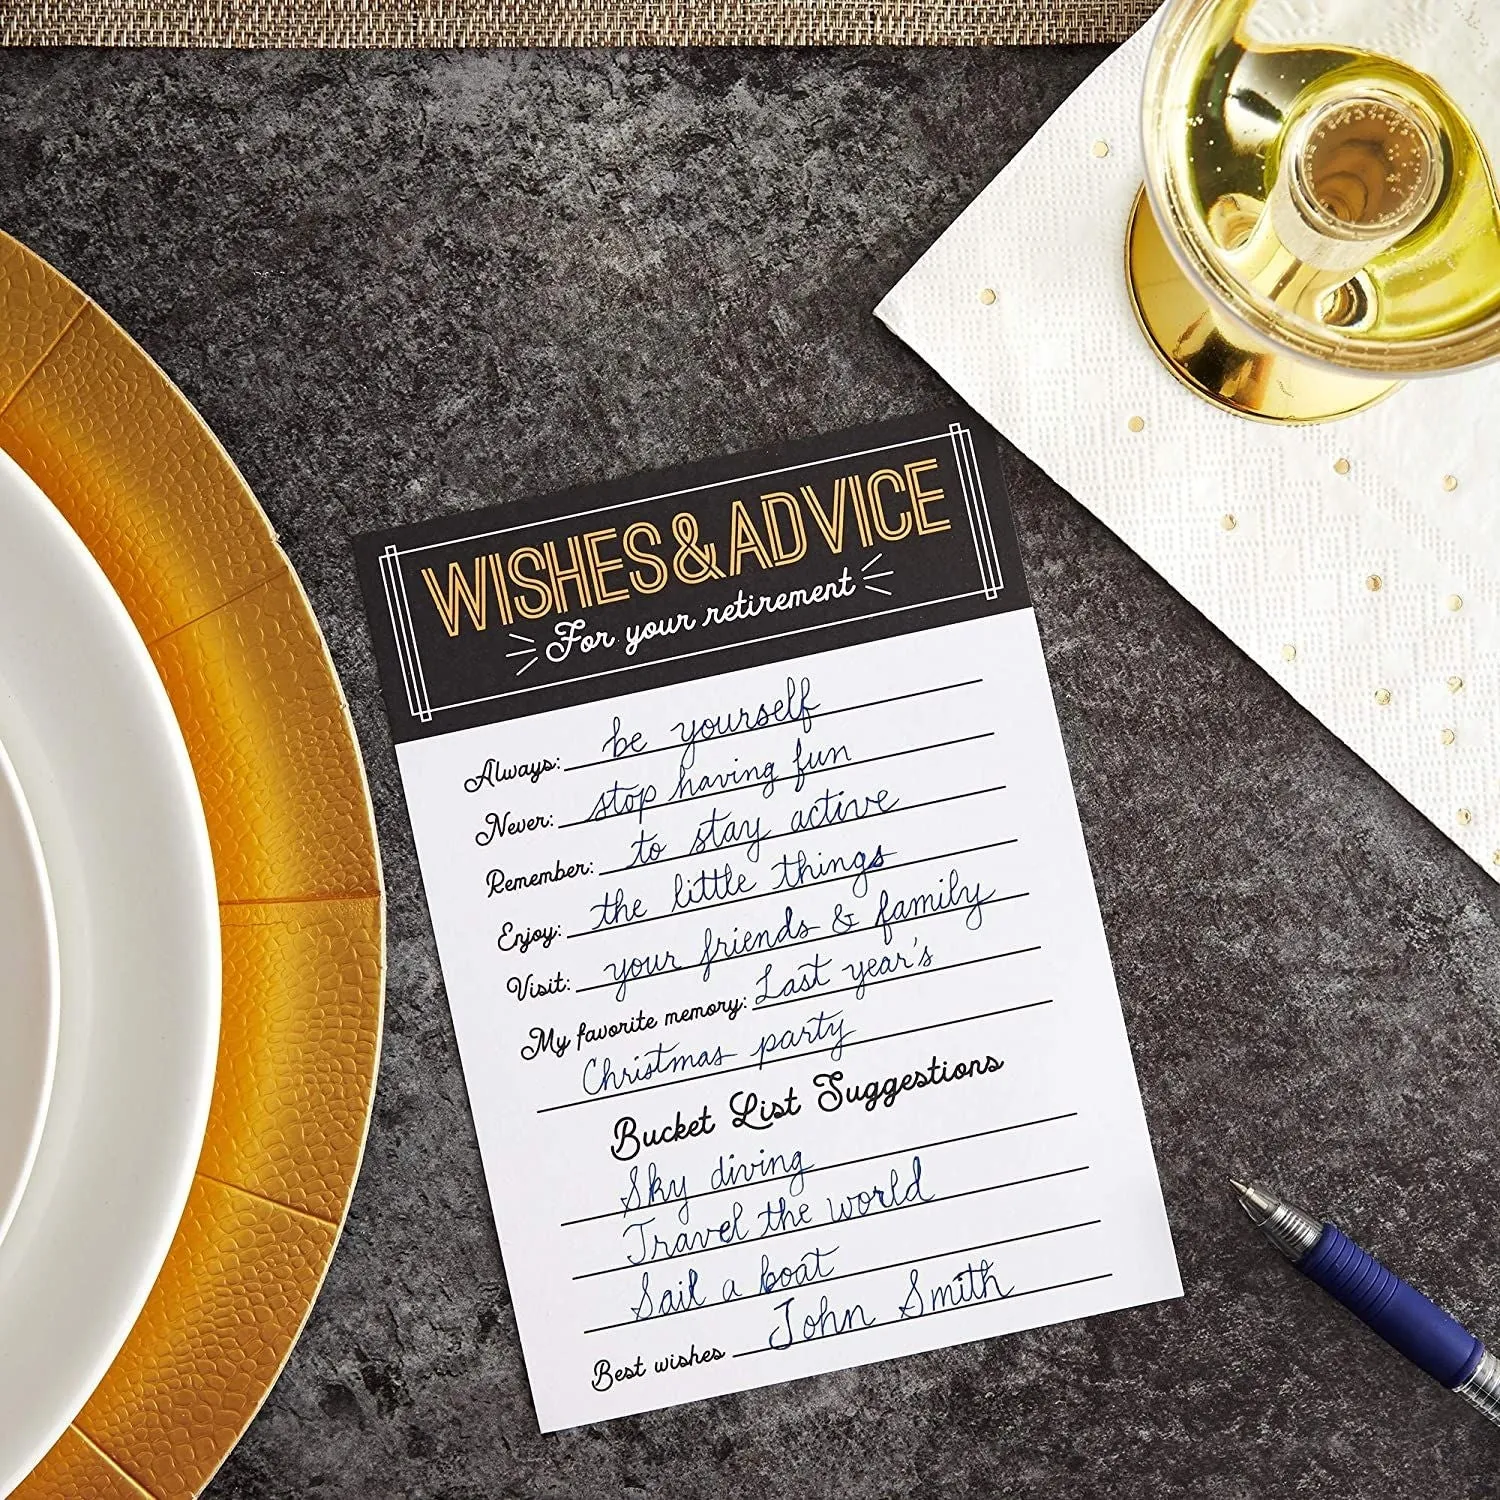 WISHES & ADVICE
For your retirement
Always: be yourself
Never: stop having fun
Remember: to stay active
Enjoy: the little things
Visit: your friends & family
My favorite memory: Last year's
Christmas party
Bucket List Suggestions
Sky diving
Travel the world
Sail a boat
Best wishes John Smith